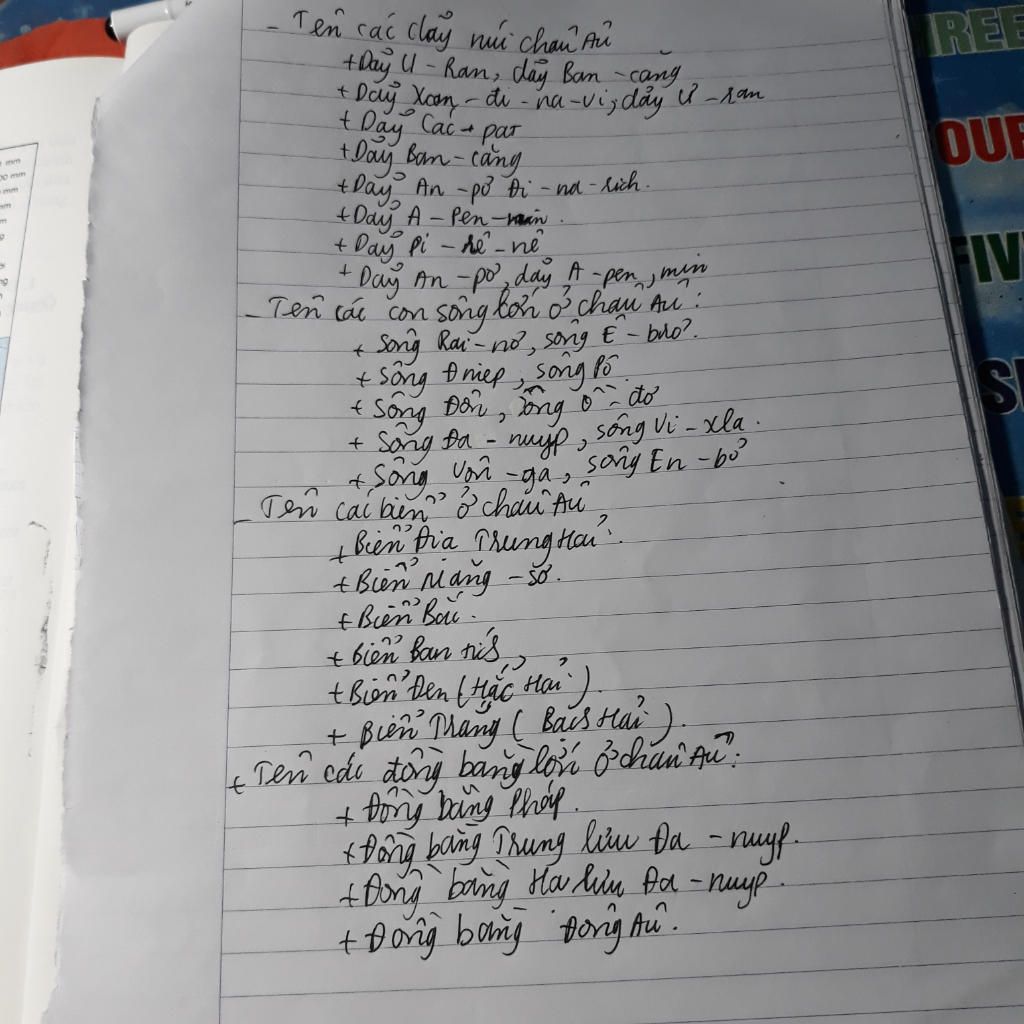 - Tên các dãy núi châu Âu
+ Dãy U - Ran, dãy Ban - căng
+ Dãy Xcan - đi - na - vi, dãy U - ran
+ Dãy Các - pat
+ Dãy Ban - căng
+ Dãy An - pơ Đi - na - rich.
+ Dãy A - Pen - min.
+ Dãy Pi - rê - nê
+ Dãy An - pơ, dãy A - pen, min
- Tên các con sông lớn ở châu Âu:
+ Sông Rai - nơ, sông Ê - brơ.
+ Sông Đniep, sông Pô
+ Sông Đôn, sông Ô - đơ
+ Sông Đa - nuyp, sông Vi - xla.
+ Sông Vôn - ga, sông En - bơ
- Tên các biển ở châu Âu
+ Biển Địa Trung Hải.
+ Biển Măng - sơ.
+ Biển Bắc.
+ Biển Ban tích
+ Biển Đen (Hắc Hải).
+ Biển Trắng (Bạch Hải).
+ Tên các đồng bằng lớn ở châu Âu:
+ Đồng bằng Pháp.
+ Đồng bằng Trung lưu Đa - nuyp.
+ Đồng bằng Hạ lưu Đa - nuyp.
+ Đồng bằng Đông Âu.
REE
OUR
FIV
S
mm
00 mm
mm
mm